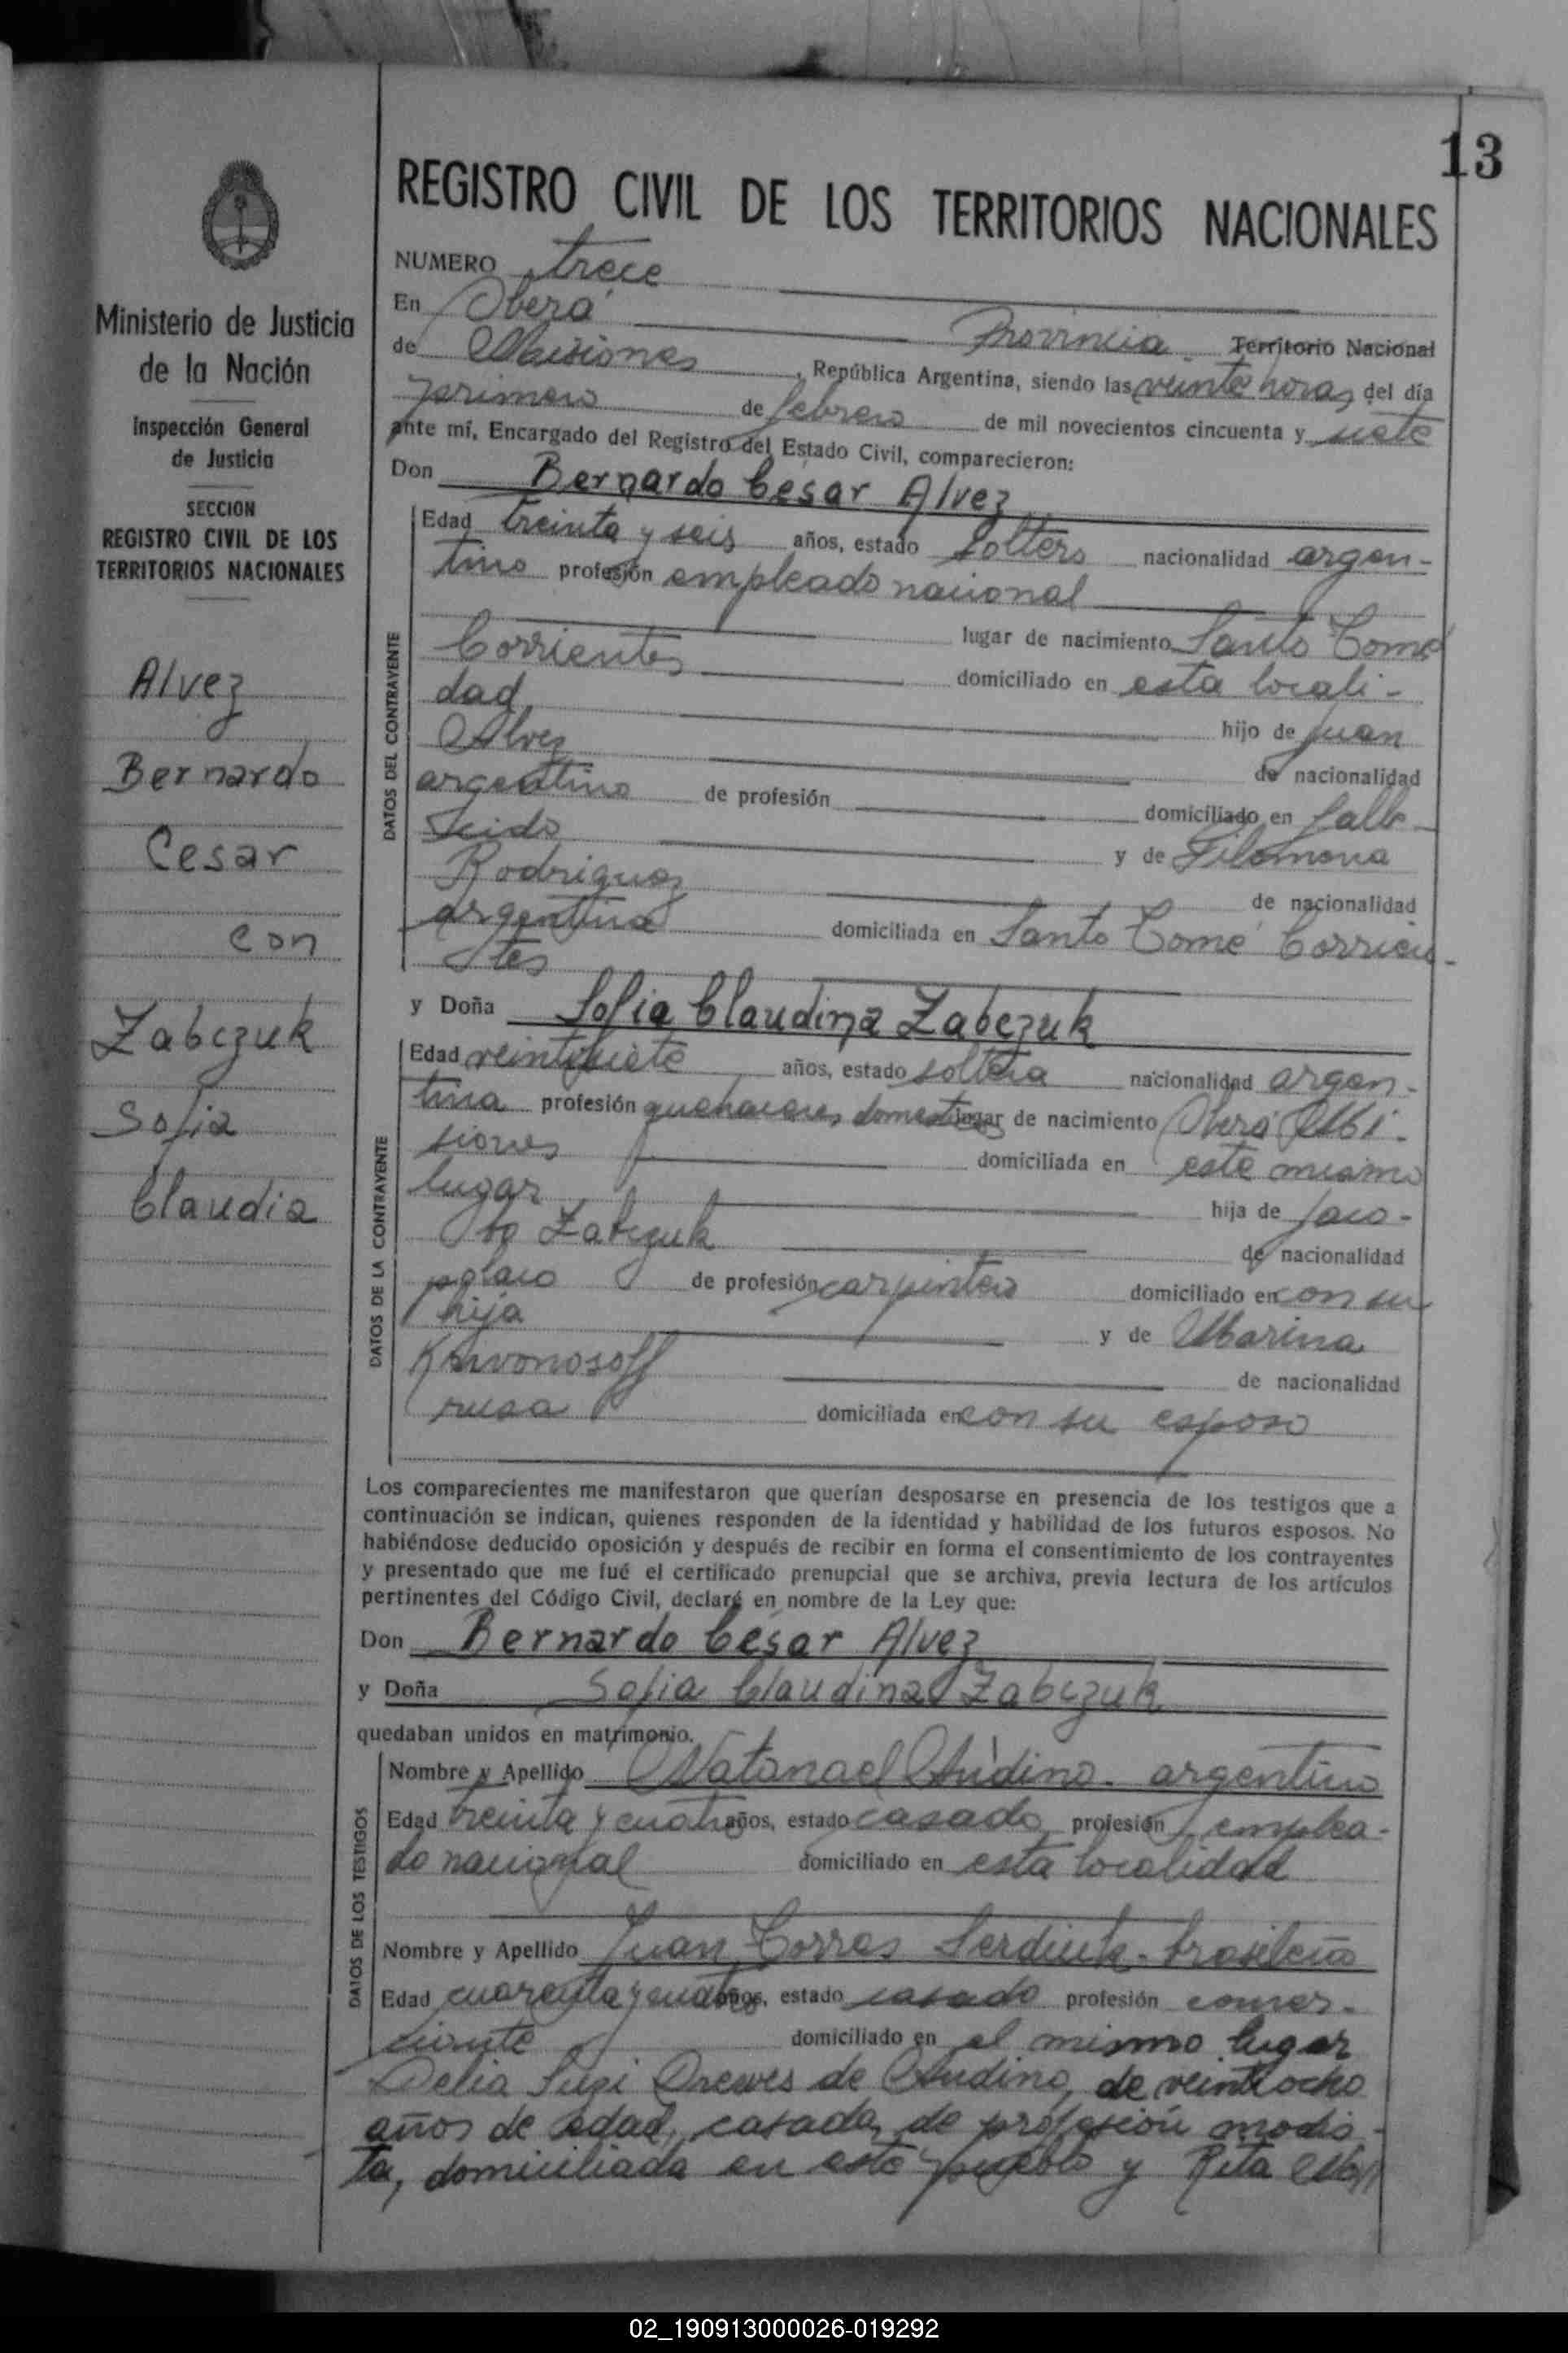 13
REGISTRO CIVIL DE LOS TERRITORIOS NACIONALES
Ministerio de Justicia
de la Nación
Inspección General
de Justicia
SECCION
REGISTRO CIVIL DE LOS
TERRITORIOS NACIONALES
Alvez
Bernardo
Cesar
con
Zabczuk
Sofia
Claudia
NUMERO trece
En Oberá Provincia Territorio Nacional
de Misiones, República Argentina, siendo las veinte horas del día
primero de febrero de mil novecientos cincuenta y siete
ante mí, Encargado del Registro del Estado Civil, comparecieron:
Don Bernardo César Alvez
DATOS DEL CONTRAYENTE
Edad treinta y seis años, estado soltero nacionalidad argen-
tino profesión empleado nacional
lugar de nacimiento Santo Tomé
Corrientes domiciliado en esta locali-
dad hijo de Juan
Alvez de nacionalidad
argentino de profesión domiciliado en falle-
cido y de Filomena
Rodriguez de nacionalidad
argentina domiciliada en Santo Tomé Corrien-
tes
y Doña Sofia Claudina Zabczuk
DATOS DE LA CONTRAYENTE
Edad veintisiete años, estado soltera nacionalidad argen-
tina profesión quehaceres domesticos lugar de nacimiento Oberá Mi-
siones domiciliada en este mismo
lugar hija de Jaco-
bo Zabczuk de nacionalidad
polaco de profesión carpintero domiciliado en con su
hija y de Marina
Krivonosoff de nacionalidad
rusa domiciliada en con su esposo
Los comparecientes me manifestaron que querían desposarse en presencia de los testigos que a
continuación se indican, quienes responden de la identidad y habilidad de los futuros esposos. No
habiéndose deducido oposición y después de recibir en forma el consentimiento de los contrayentes
y presentado que me fué el certificado prenupcial que se archiva, previa lectura de los artículos
pertinentes del Código Civil, declaré en nombre de la Ley que:
Don Bernardo César Alvez
y Doña Sofia Claudina Zabczuk
quedaban unidos en matrimonio.
DATOS DE LOS TESTIGOS
Nombre y Apellido Natanael Andino - argentino
Edad treinta y cuatro años, estado casado profesión emplea-
do nacional domiciliado en esta localidad
Nombre y Apellido Juan Torres Serdiuk - brasileño
Edad cuarenta y cuatro años, estado casado profesión comer-
ciante domiciliado en el mismo lugar
Delia Suzi Drewes de Andino, de veintiocho
años de edad, casada, de profesión modis-
ta, domiciliada en este pueblo y Rita
02_190913000026-019292